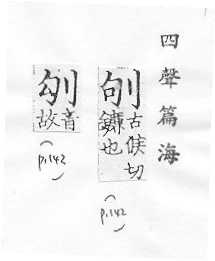 四聲篇海
古侯切
鎌也
(p.142)
音
故
(p.142)